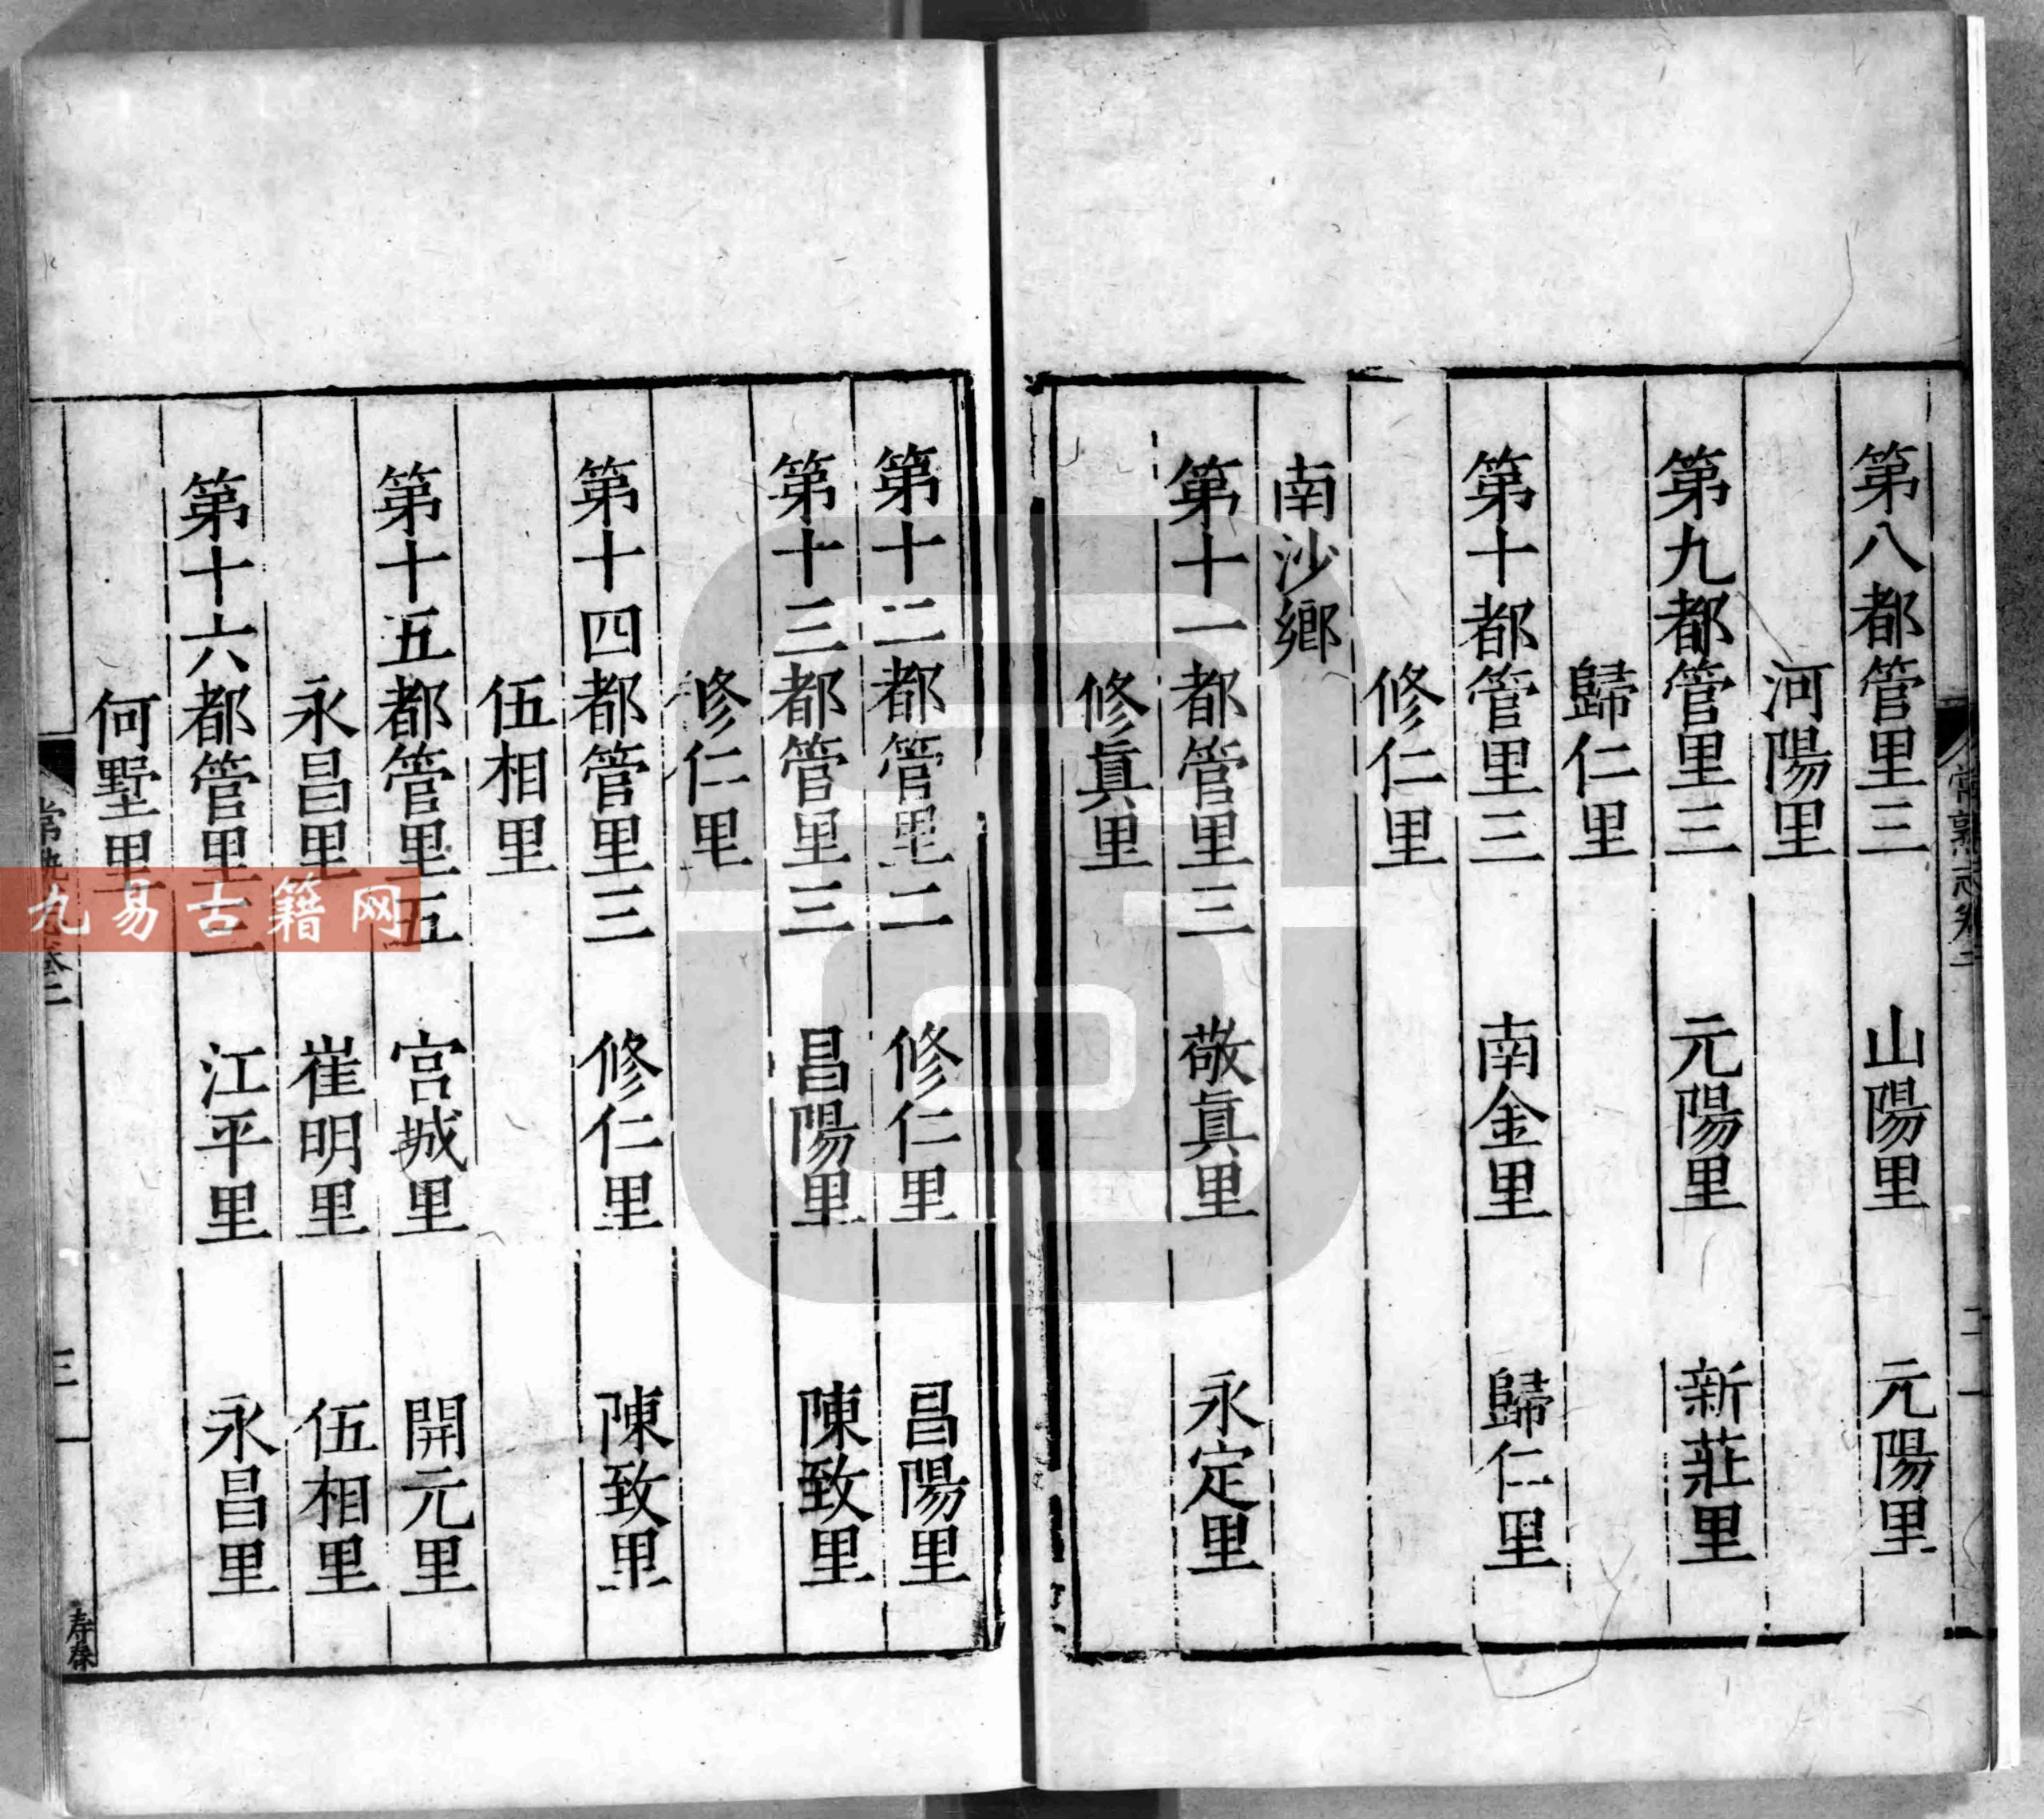 第八都管里三　山陽里　元陽里
河陽里
第九都管里三　元陽里　新莊里
歸仁里
第十都管里三　南金里　歸仁里
修仁里
南沙鄉
第十一都管里三　敬眞里　永定里
修眞里
第十二都管里二　修仁里　昌陽里
第十三都管里三　昌陽里　陳致里
修仁里
第十四都管里三　修仁里　陳致里
伍相里
第十五都管里五　宮城里　開元里
永昌里　崔明里　伍相里
第十六都管里三　江平里　永昌里
何墅里
三
九易古籍网